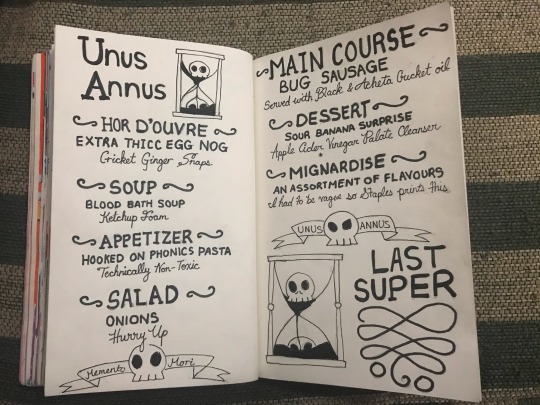 Unus
Annus
HOR D'OUVRE
EXTRA THICC EGG NOG
Cricket Ginger Snaps
SOUP
BLOOD BATH SOUP
Ketchup Foam
APPETIZER
HOOKED ON PHONICS PASTA
Technically Non-Toxic
SALAD
ONIONS
Hurry Up
Memento Mori
MAIN COURSE
BUG SAUSAGE
Served with Black & Acheta Cricket oil
DESSERT
SOUR BANANA SURPRISE
Apple Cider Vinegar Palate Cleanser
MIGNARDISE
AN ASSORTMENT OF FLAVOURS
I had to be vague so Staples prints this
UNUS ANNUS
LAST
SUPER